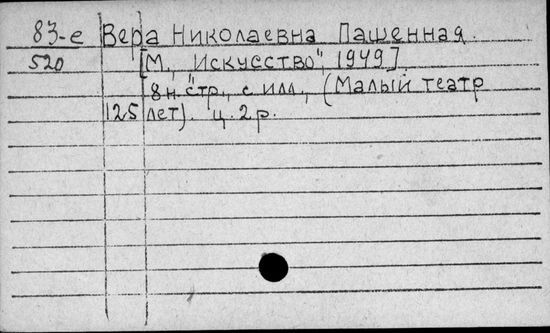 83-е Вера Николаевна Пашенная.
520 [М., "Искусство", 1949].
8 н. стр., с илл., (Малый театр
125 лет). Ц. 2 р.